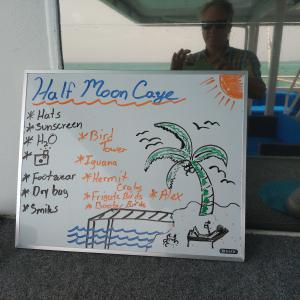 Half Moon Caye
* Hats
* Sunscreen
* H2O
*
* Footwear
* Dry bag
* Smiles
* Bird Tower
* Iguana
* Hermit Crabs
* Frigate Birds
* Booby Birds
* Alex